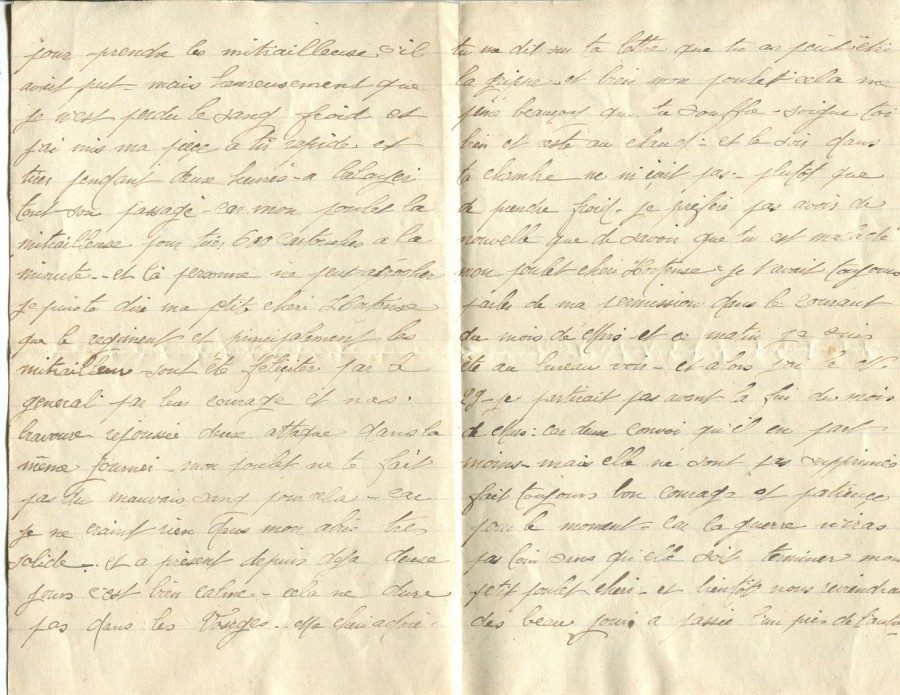 pour prendre les mitrailleuse s'il
avait put - mais heureusement que
je n'est perdu le sang froid et
j'ai mis ma pièce a tir rapide et
tirer pendant deux heures - a balayer
tout son passage - car mon poulet la
mitrailleuse pour tirer 600 cartouches a la
minute - et là personne ne peut
je puis te dire ma ptite cheri Hortense
que le regiment et principalement les
mitrailleur sont été féliciter par le
general par leur courage et nos
bravoure repoussée deux attaque dans la
même journei - mon poulet ne te fait
pas du mauvais sang pour cela - car
je ne craint rien dans mon abri très
solide - et a présent depuis deja deuse
jours c'est bien calme - cela ne dure
pas dans les Vosges - Ma cheri adoré
tu me dit sur ta lettre que tu as peut être
la grippe - et bien mon poulet cela me
peine beaucoup que tu souffre - soigne toi
bien et reste au chaud - et le soir dans
ta chambre ne m'écrit pas - plutôt que
de prendre froid - je préfère pas avoir de
nouvelle que de savoir que tu est malade
mon poulet cheri Hortense - je t'avait toujours
parler de ma permission dans le courant
du mois de Mars et ce matin je suis
été au bureau voir - et alors j'ai le N°
29 - je partirait pas avant la fin du mois
de Mars : car deuse convoi qu'il en part
moins - mais elle ne sont pas supprimés
fait toujours bon courage et patience
pour le moment - car la guerre n'iras
pas loin sans qu'elle soit terminer mon
petit poulet cheri - et bientôt nous reviendra
des beau jours a passer l'un près de l'autre